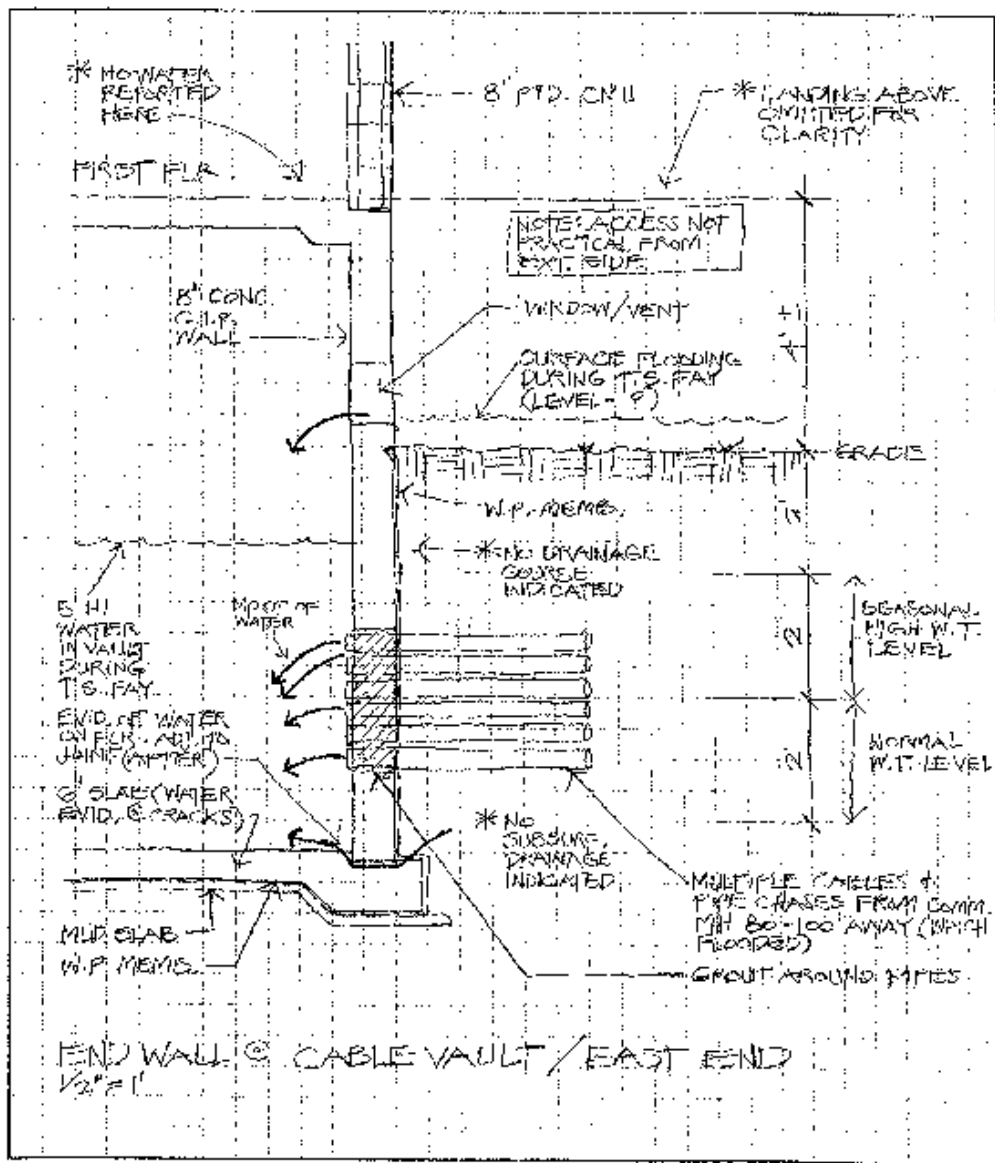 * NO WATER
REPORTED
HERE
8" PTD. CMU
* LANDING ABOVE
OMITTED FOR
CLARITY
FIRST FLR
NOTE: ACCESS NOT
PRACTICAL FROM
EXT. SIDE
8" CONC.
C.I.P.
WALL
WINDOW/VENT
SURFACE FLOODING
DURING T.S. FAY
(LEVEL - ?)
GRADE
W.P. MEMB.
* NO DRAINAGE
COURSE
INDICATED
5' HI
WATER
IN VAULT
DURING
T.S. FAY
MOST OF
WATER
SEASONAL
HIGH W.T.
LEVEL
2
EVID. OF WATER
ON FLR. ADJ. TO
JOINT (AFTER)
NORMAL
W.T. LEVEL
2
6" SLAB (WATER
EVID. @ CRACKS)
* NO
SUBSURF.
DRAINAGE
INDICATED
MULTIPLE CABLES &
PIPE CHASES FROM COMM.
MH 80'-100' AWAY (WHICH
FLOODED)
MUD SLAB
W.P. MEMB.
GROUT AROUND PIPES
END WALL @ CABLE VAULT / EAST END
1/2" = 1'